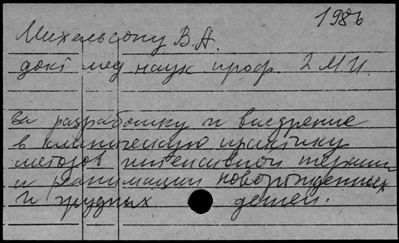 1986
Михельсону В.А.
докт мед наук проф. 2 МИ.
за разработку и внедрение
в клиническую практику
методов интенсивной терапии
и реанимации новорожденных
и грудных детей.